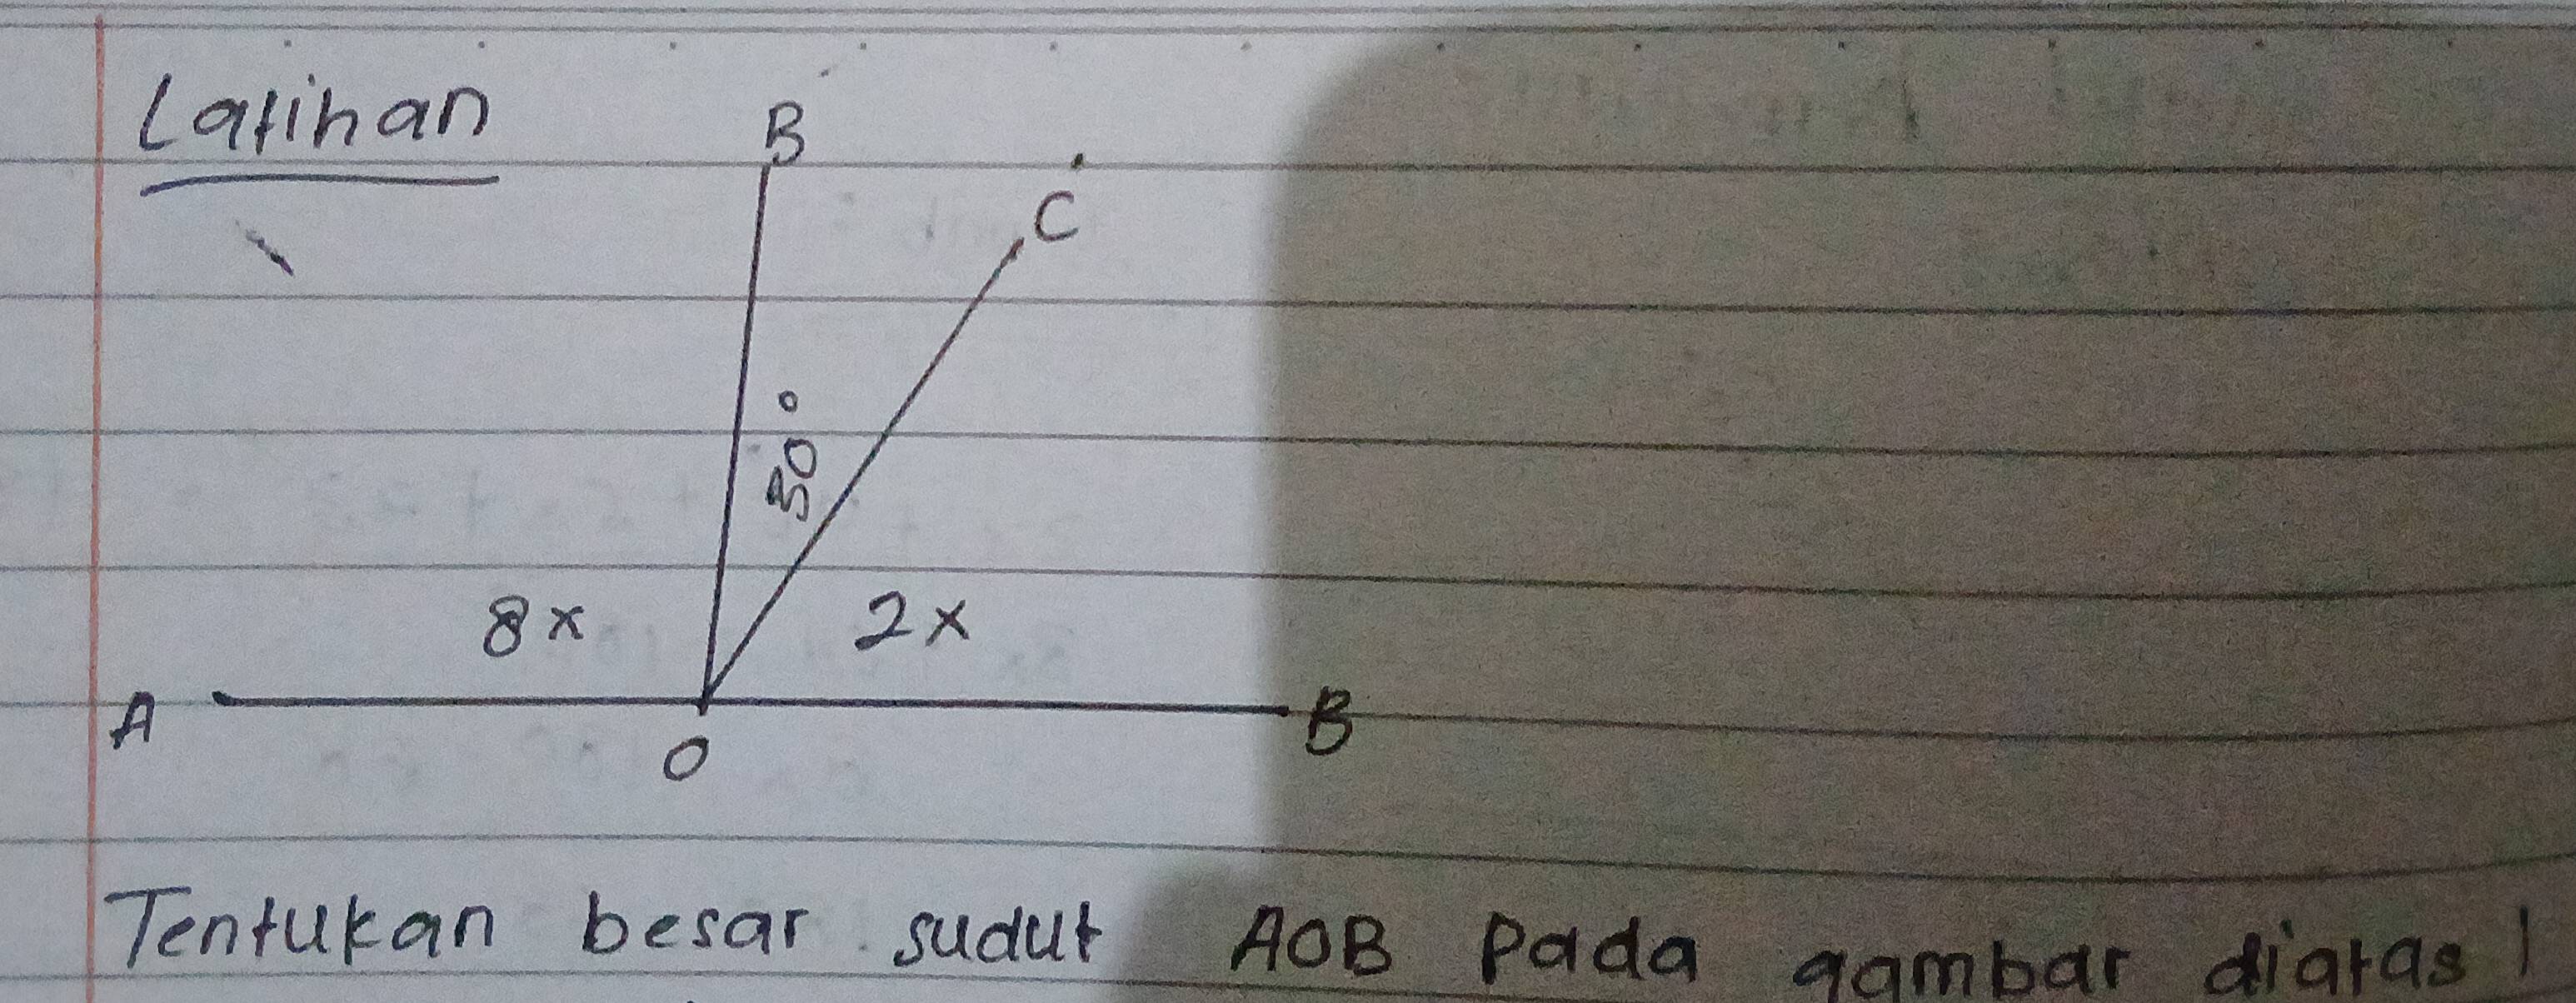 Latihan
B
C
30°
8x
2x
A
O
B
Tentukan besar sudut AOB pada gambar diatas!